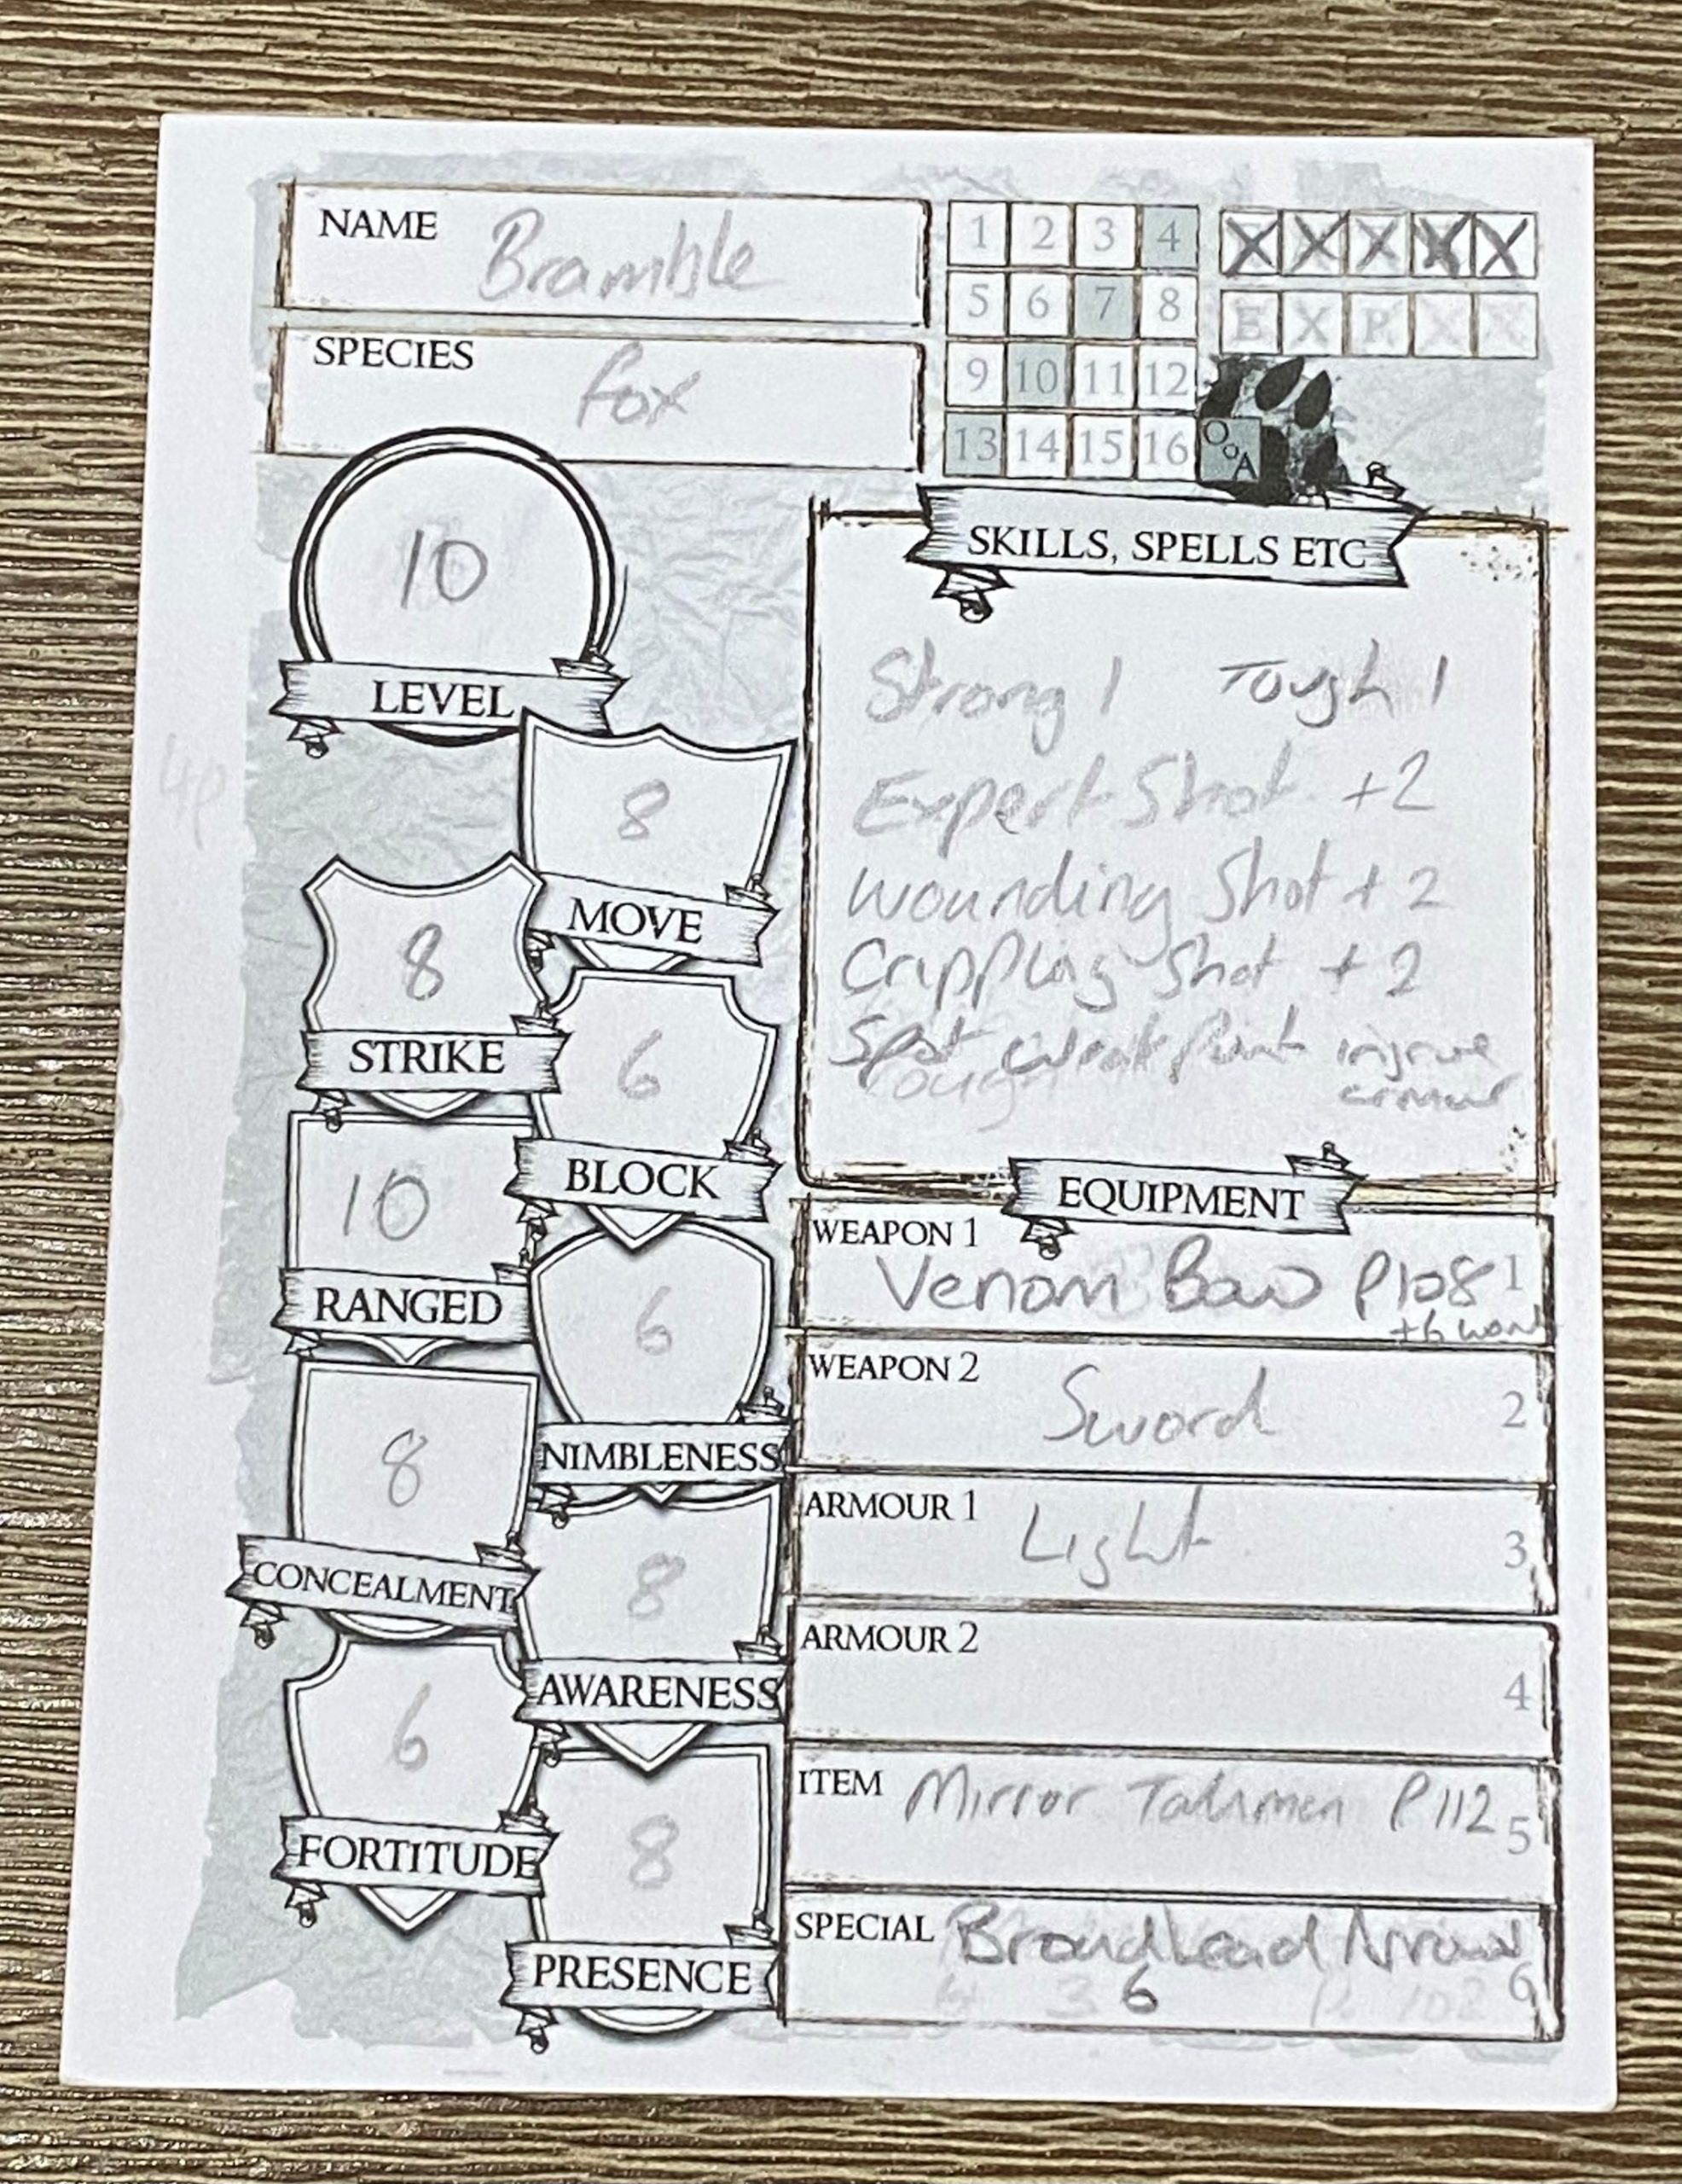 NAME Bramble
SPECIES fox
1 2 3 4
5 6 7 8
9 10 11 12
13 14 15 16
X X X X X
E X P X X
OoA
10
LEVEL
8
MOVE
8
STRIKE
6
BLOCK
10
RANGED
6
NIMBLENESS
8
CONCEALMENT
8
AWARENESS
6
FORTITUDE
8
PRESENCE
SKILLS, SPELLS ETC
Strong 1 Tough 1
Expert Shot +2
Wounding Shot + 2
Crippling Shot + 2
Spot Weak Point ingnore
armour
EQUIPMENT
WEAPON 1
Venom Bow P108 1
WEAPON 2 Sword 2
ARMOUR 1 Light 3
ARMOUR 2
4
ITEM Mirror Talisman P112 5
SPECIAL Broadhead Arrows
6 6